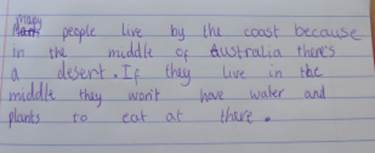 Many people live by the coast because
in the middle of Australia there's
a desert. If they live in the
middle they won't have water and
plants to eat at there.